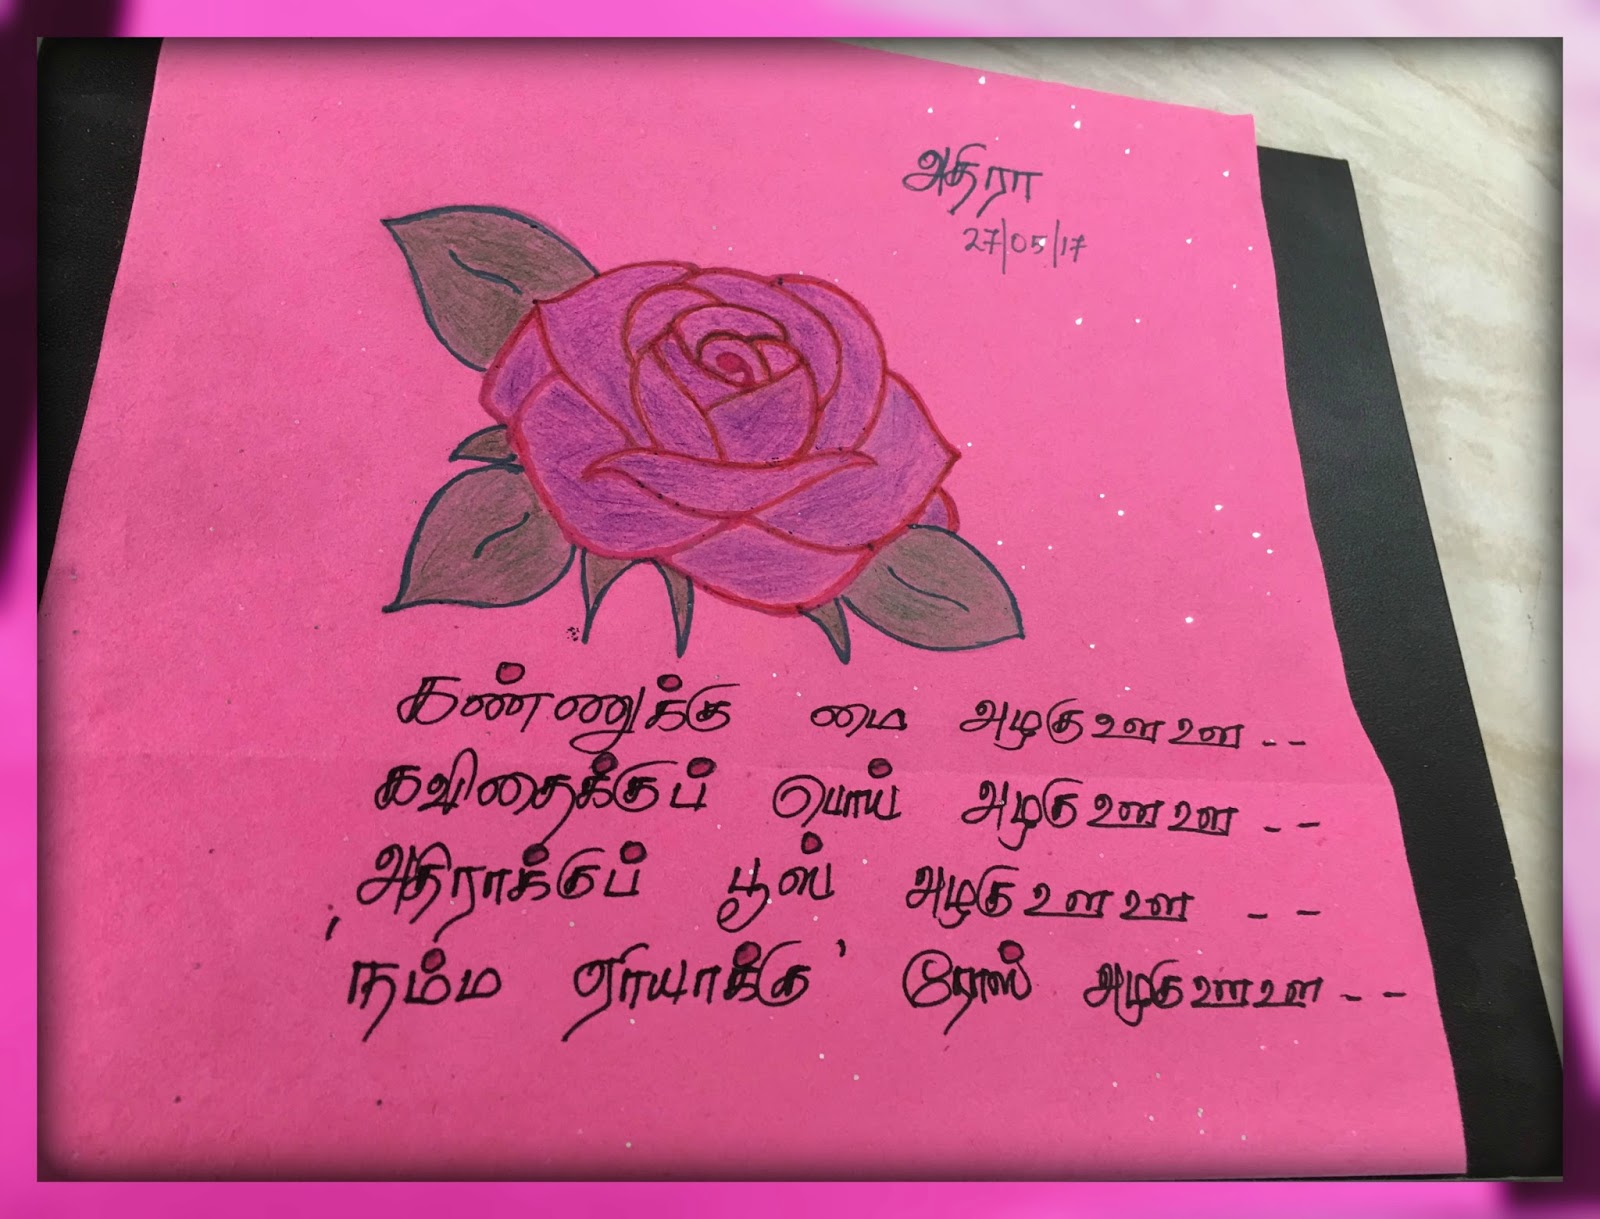 அதிரா
27/05/17
கண்ணுக்கு மை அழகுஊஊ--
கவிதைக்குப் பொய் அழகுஊஊ--
அதிராக்குப் பூஸ் அழகுஊஊ --
'நம்ம ஏரியாக்கு' ரோஸ் அழகுஊஊ--